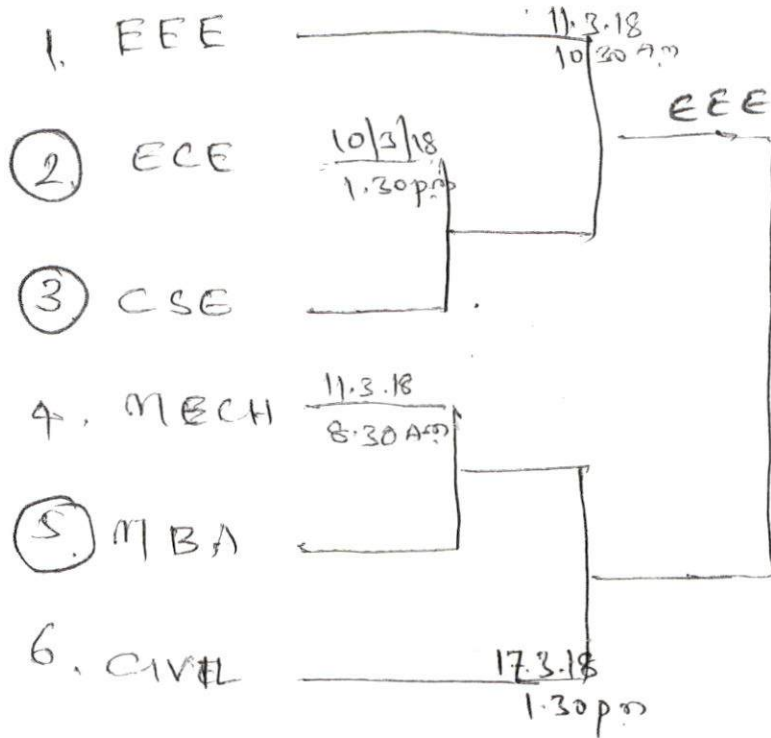 1. EEE
11.3.18
10.30 Am
EEE
2. ECE
10/3/18
1.30pm
3 CSE
4. MECH
11.3.18
8.30 Am
5. MBA
6. CIVIL
17.3.18
1.30pm